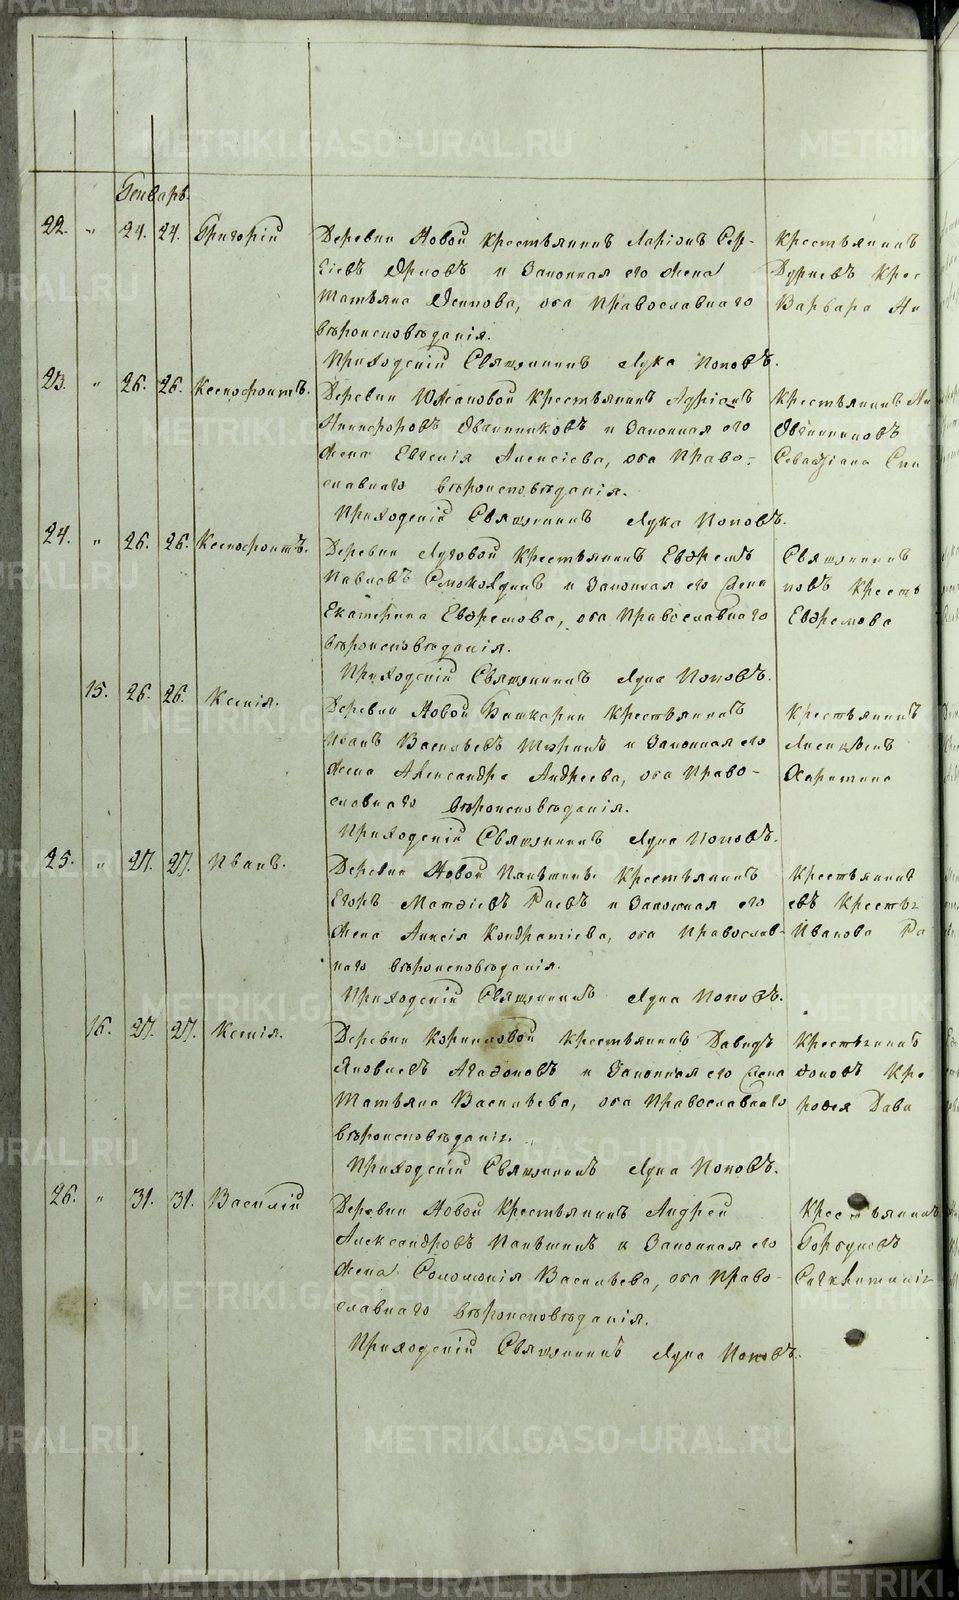 Генварь.
22. " 24. 24. Григорий Деревни Новой крестьянинъ Ларіонъ Сер- Крестьянинъ
гіевъ Орловъ и Законная его жена Крес
Татьяна Осипова, оба Православнаго Варвара Ан
вѣроисповѣданія.
Приходскій Священникъ Лука Поповъ.
23. " 26. 26. Ксенофонтъ. Деревни Южаковой Крестьянинъ Адріанъ Крестьянинъ
Никифоровъ Овчинниковъ и Законная его Овчинниковъ
жена Евгенія Алексіева, оба Право-
славнаго вѣроисповѣданія.
Приходскій Священникъ Лука Поповъ.
24. " 26. 26. Ксенофонтъ. Деревни Луговой Крестьянинъ Евфремъ Священникъ
Павловъ и Законная его жена повъ Кресть
Екатерина Евфремова, оба Православнаго Евфремова
вѣроисповѣданія.
Приходскій Священникъ Лука Поповъ.
15. 26. 26. Ксенія. Деревни Новой Башкарки Крестьянинъ Крестьянинъ
Иванъ Васильевъ и Законная его
жена Александра Андреева, оба Право- Харитина
славнаго вѣроисповѣданія.
Приходскій Священникъ Лука Поповъ.
25. " 27. 27. Иванъ. Деревни Новой Паньшины Крестьянинъ Крестьянинъ
Егоръ Матфіевъ Раевъ и Законная его евъ Кресть
жена Анисія Кондратіева, оба Православ- Иванова Ра
наго вѣроисповѣданія.
Приходскій Священникъ Лука Поповъ.
16. 27. 27. Ксенія. Деревни Корниловой Крестьянинъ Давидъ Крестьянинъ
Яковлевъ Агафоновъ и Законная его жена фоновъ Кре
Татьяна Васильева, оба Православнаго Дави
вѣроисповѣданія.
Приходскій Священникъ Лука Поповъ.
26. " 31. 31. Василій Деревни Новой Крестьянинъ Андрей Крестьянинъ
Александровъ Паньшинъ и Законная его Горбуновъ
жена Соломонія Васильева, оба Право-
славнаго вѣроисповѣданія.
Приходскій Священникъ Лука Поповъ.
METRIKI.GASO-URAL.RU